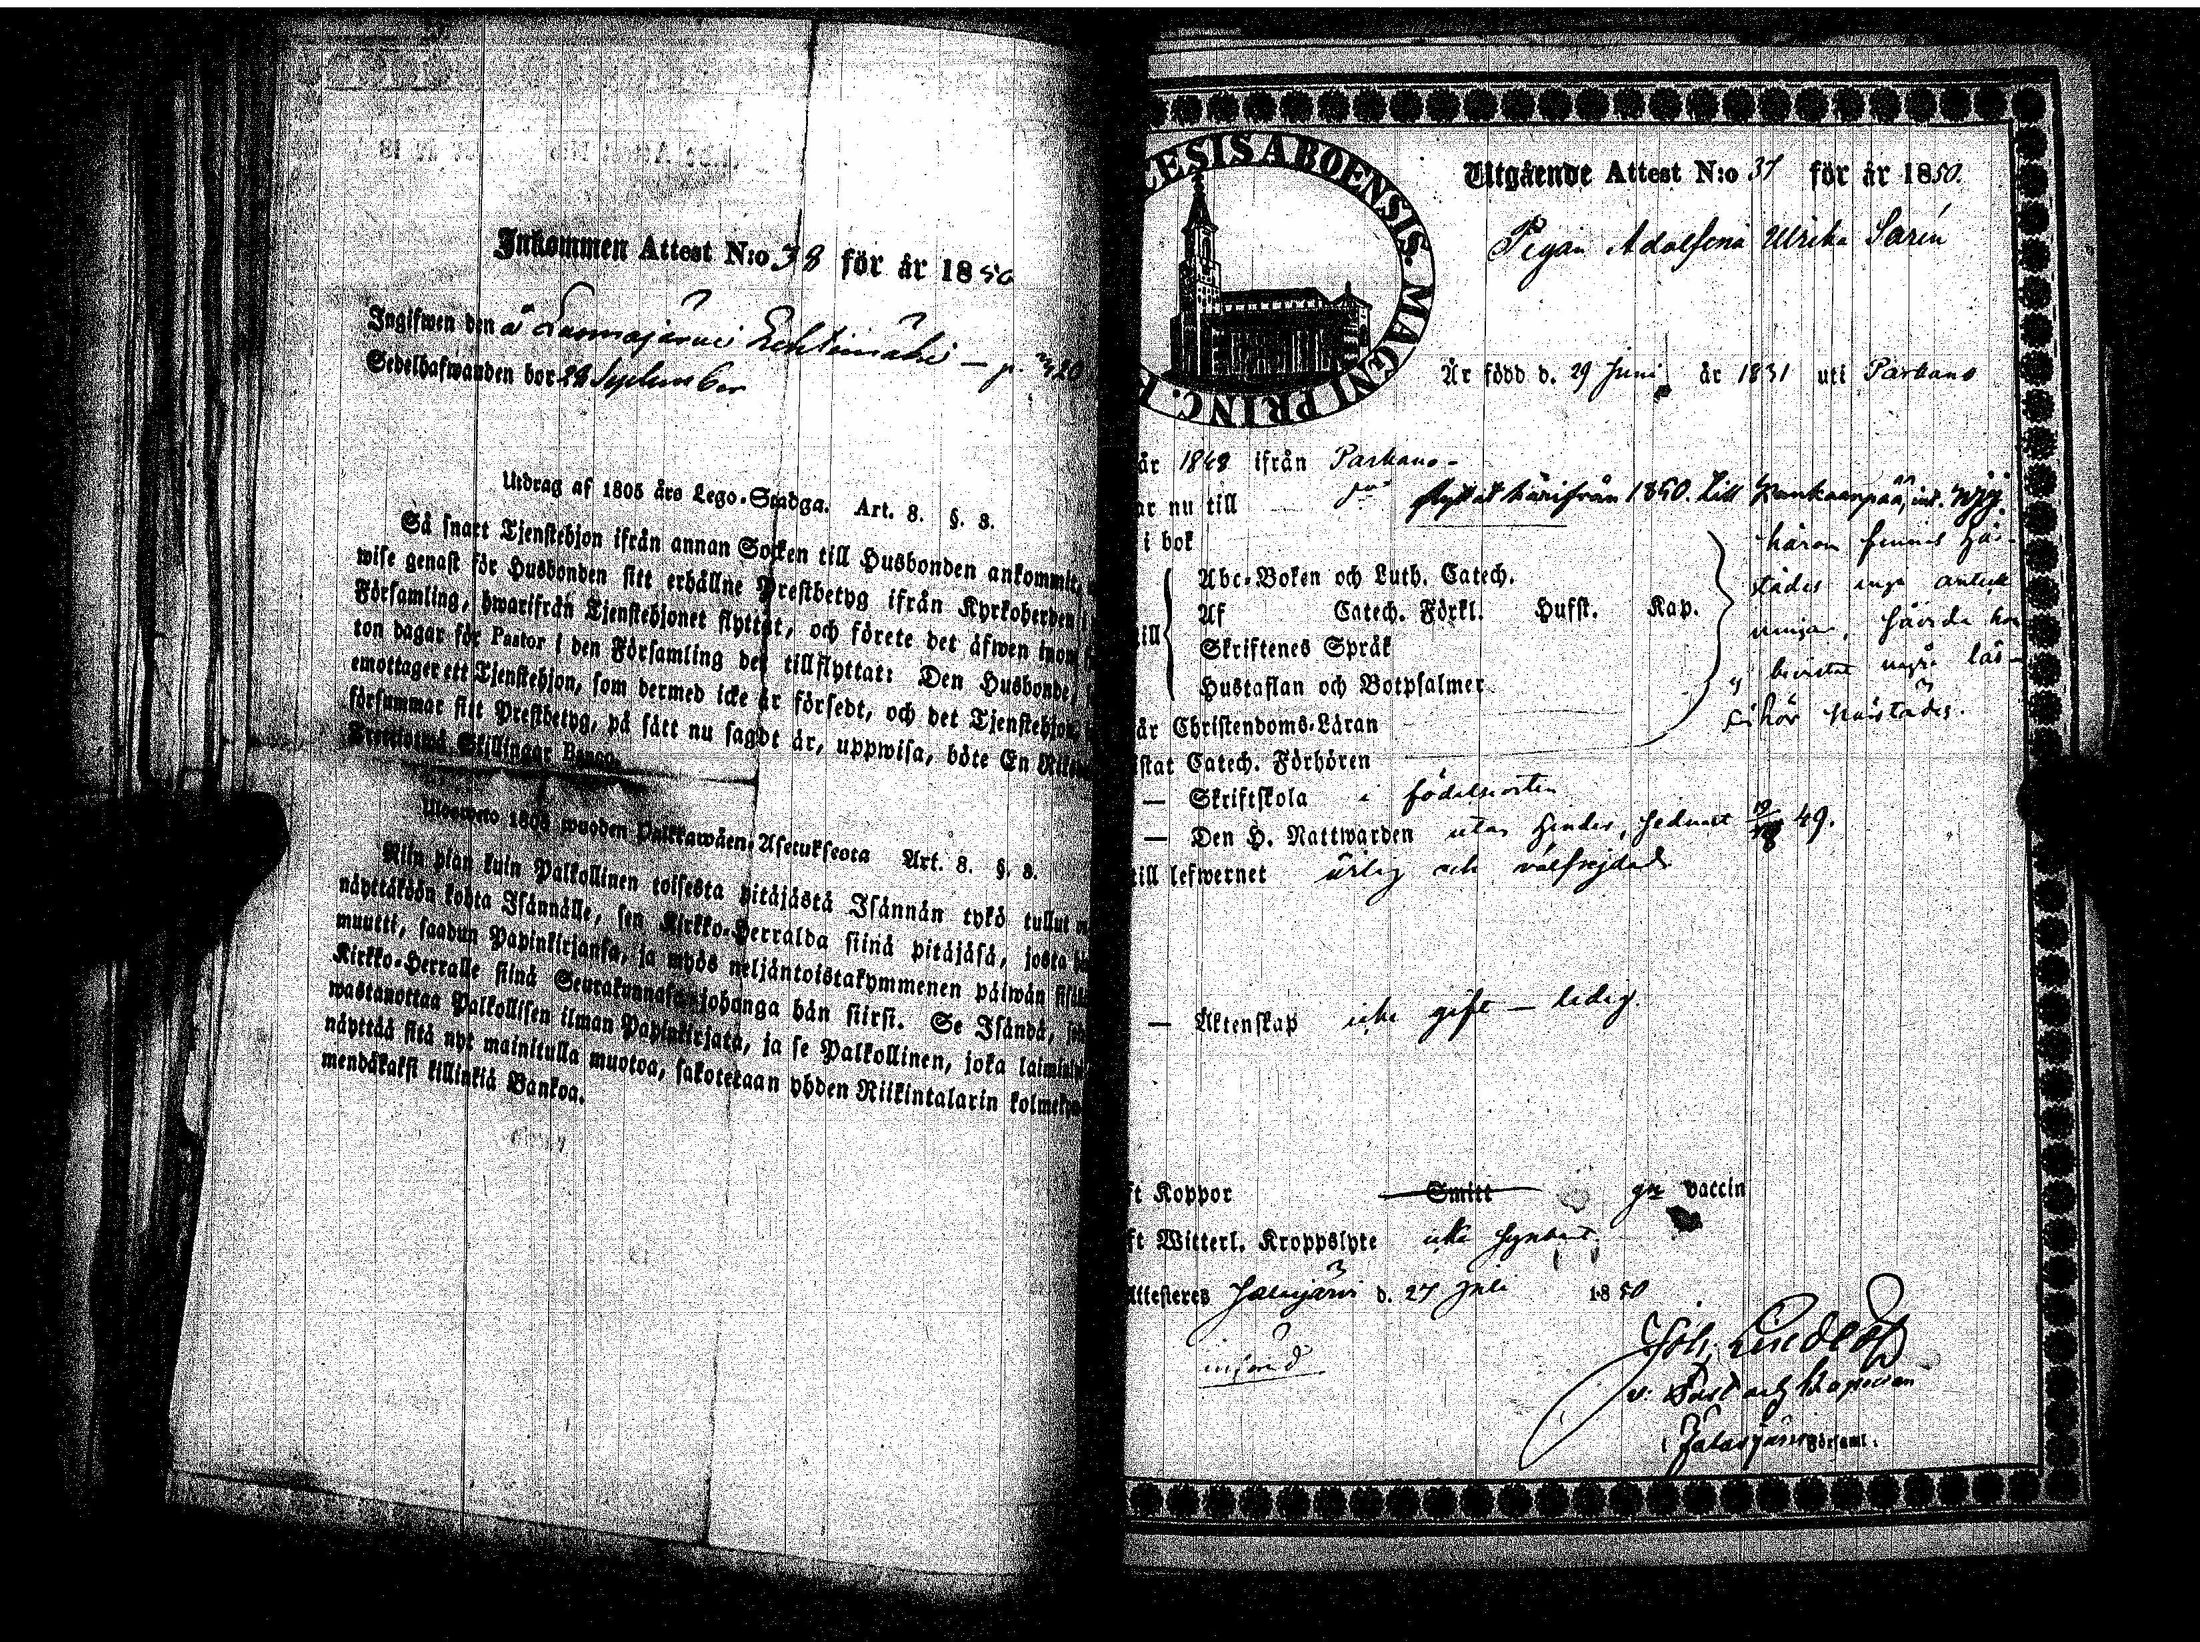 Inkommen Attest N:o 38 för år 1850
Ingifwen den
Sedelhafwanden bor 22 September
Utdrag af 1805 års Lego-Stadga. Art. 8. §. 8.
Så snart Tjenstehjon ifrån annan Socken till Husbonden ankommit,
wise genast för Husbonden sitt erhållne Prestbetyg ifrån Kyrkoherden i
Församling, hwarifrån Tjenstehjonet flyttat, och förete det äfwen inom
ton dagar för Pastor i den Församling det tillflyttat: Den Husbonde,
emottager ett Tjenstehjon, som dermed icke är försedt, och det Tjenstehjon,
försummar sitt Prestbetyg, på sätt nu sagdt är, uppwisa, böte En
Trettiotwå Skillingar Banco.
Ulosweto 1805 wuoden Palkkawäen-Asetuksesta Art. 8. §. 8.
Niin pian kuin Palkollinen toisesta pitäjästä Isännän tykö tullut
näyttäköön kohta Isännälle, sen Kirkko-Herralda siinä pitäjäsä, josta
muutti, saadun Papinkirjansa, ja myös neljäntoistakymmenen päiwän
Kirkko-Herralle siinä Seurakunnasa johonga hän siirsi. Se Isändä,
wastanottaa Palkollisen ilman Papinkirjata, ja se Palkollinen, joka
näyttää sitä nyt mainitulla muotoa, sakotetaan yhden Riikintalarin
mendäkaksi killinkiä Bankoa.
ESIS ABOENSIS. MAGNI PRINC.
Utgående Attest N:o 37 för år 1850.
Pigan Adolfina Ulrika Sarén
Är född d. 29 Juni år 1831 uti Parkano
år 1848 ifrån Parkano
ar nu till flyttat härifrån 1850. till Kankaanpää,
i bok
härom finnes här-
städes inga anteck
Abc-Boken och Luth. Catech.
Af Catech. Förkl. Hufst. Kap.
ningar,
Skriftenes Språk
bevistat några läs-
Hustaflan och Botpsalmer
förhör härstädes.
är Christendoms-Läran
istat Catech. Förhören
— Skriftskola i födelseorten
— Den H. Nattwarden 49.
till lefwernet ärlig och välfrejdad
— Äktenskap icke gift — ledig.
ft Koppor Smitt gm vaccin
ft Witterl. Kroppslyte icke synbart.
Attesteres Jalasjärvi d. 27 Juli 1850
införd
Joh.
v. Past och Kapellan
i Jalasjärvi Församl.